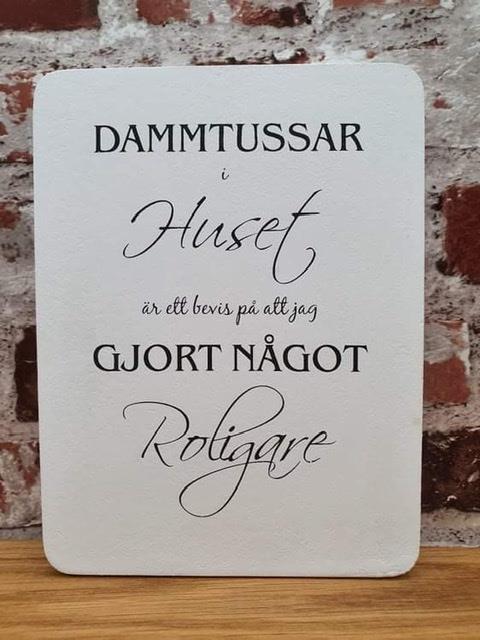 DAMMTUSSAR
i
Huset
är ett bevis på att jag
GJORT NÅGOT
Roligare